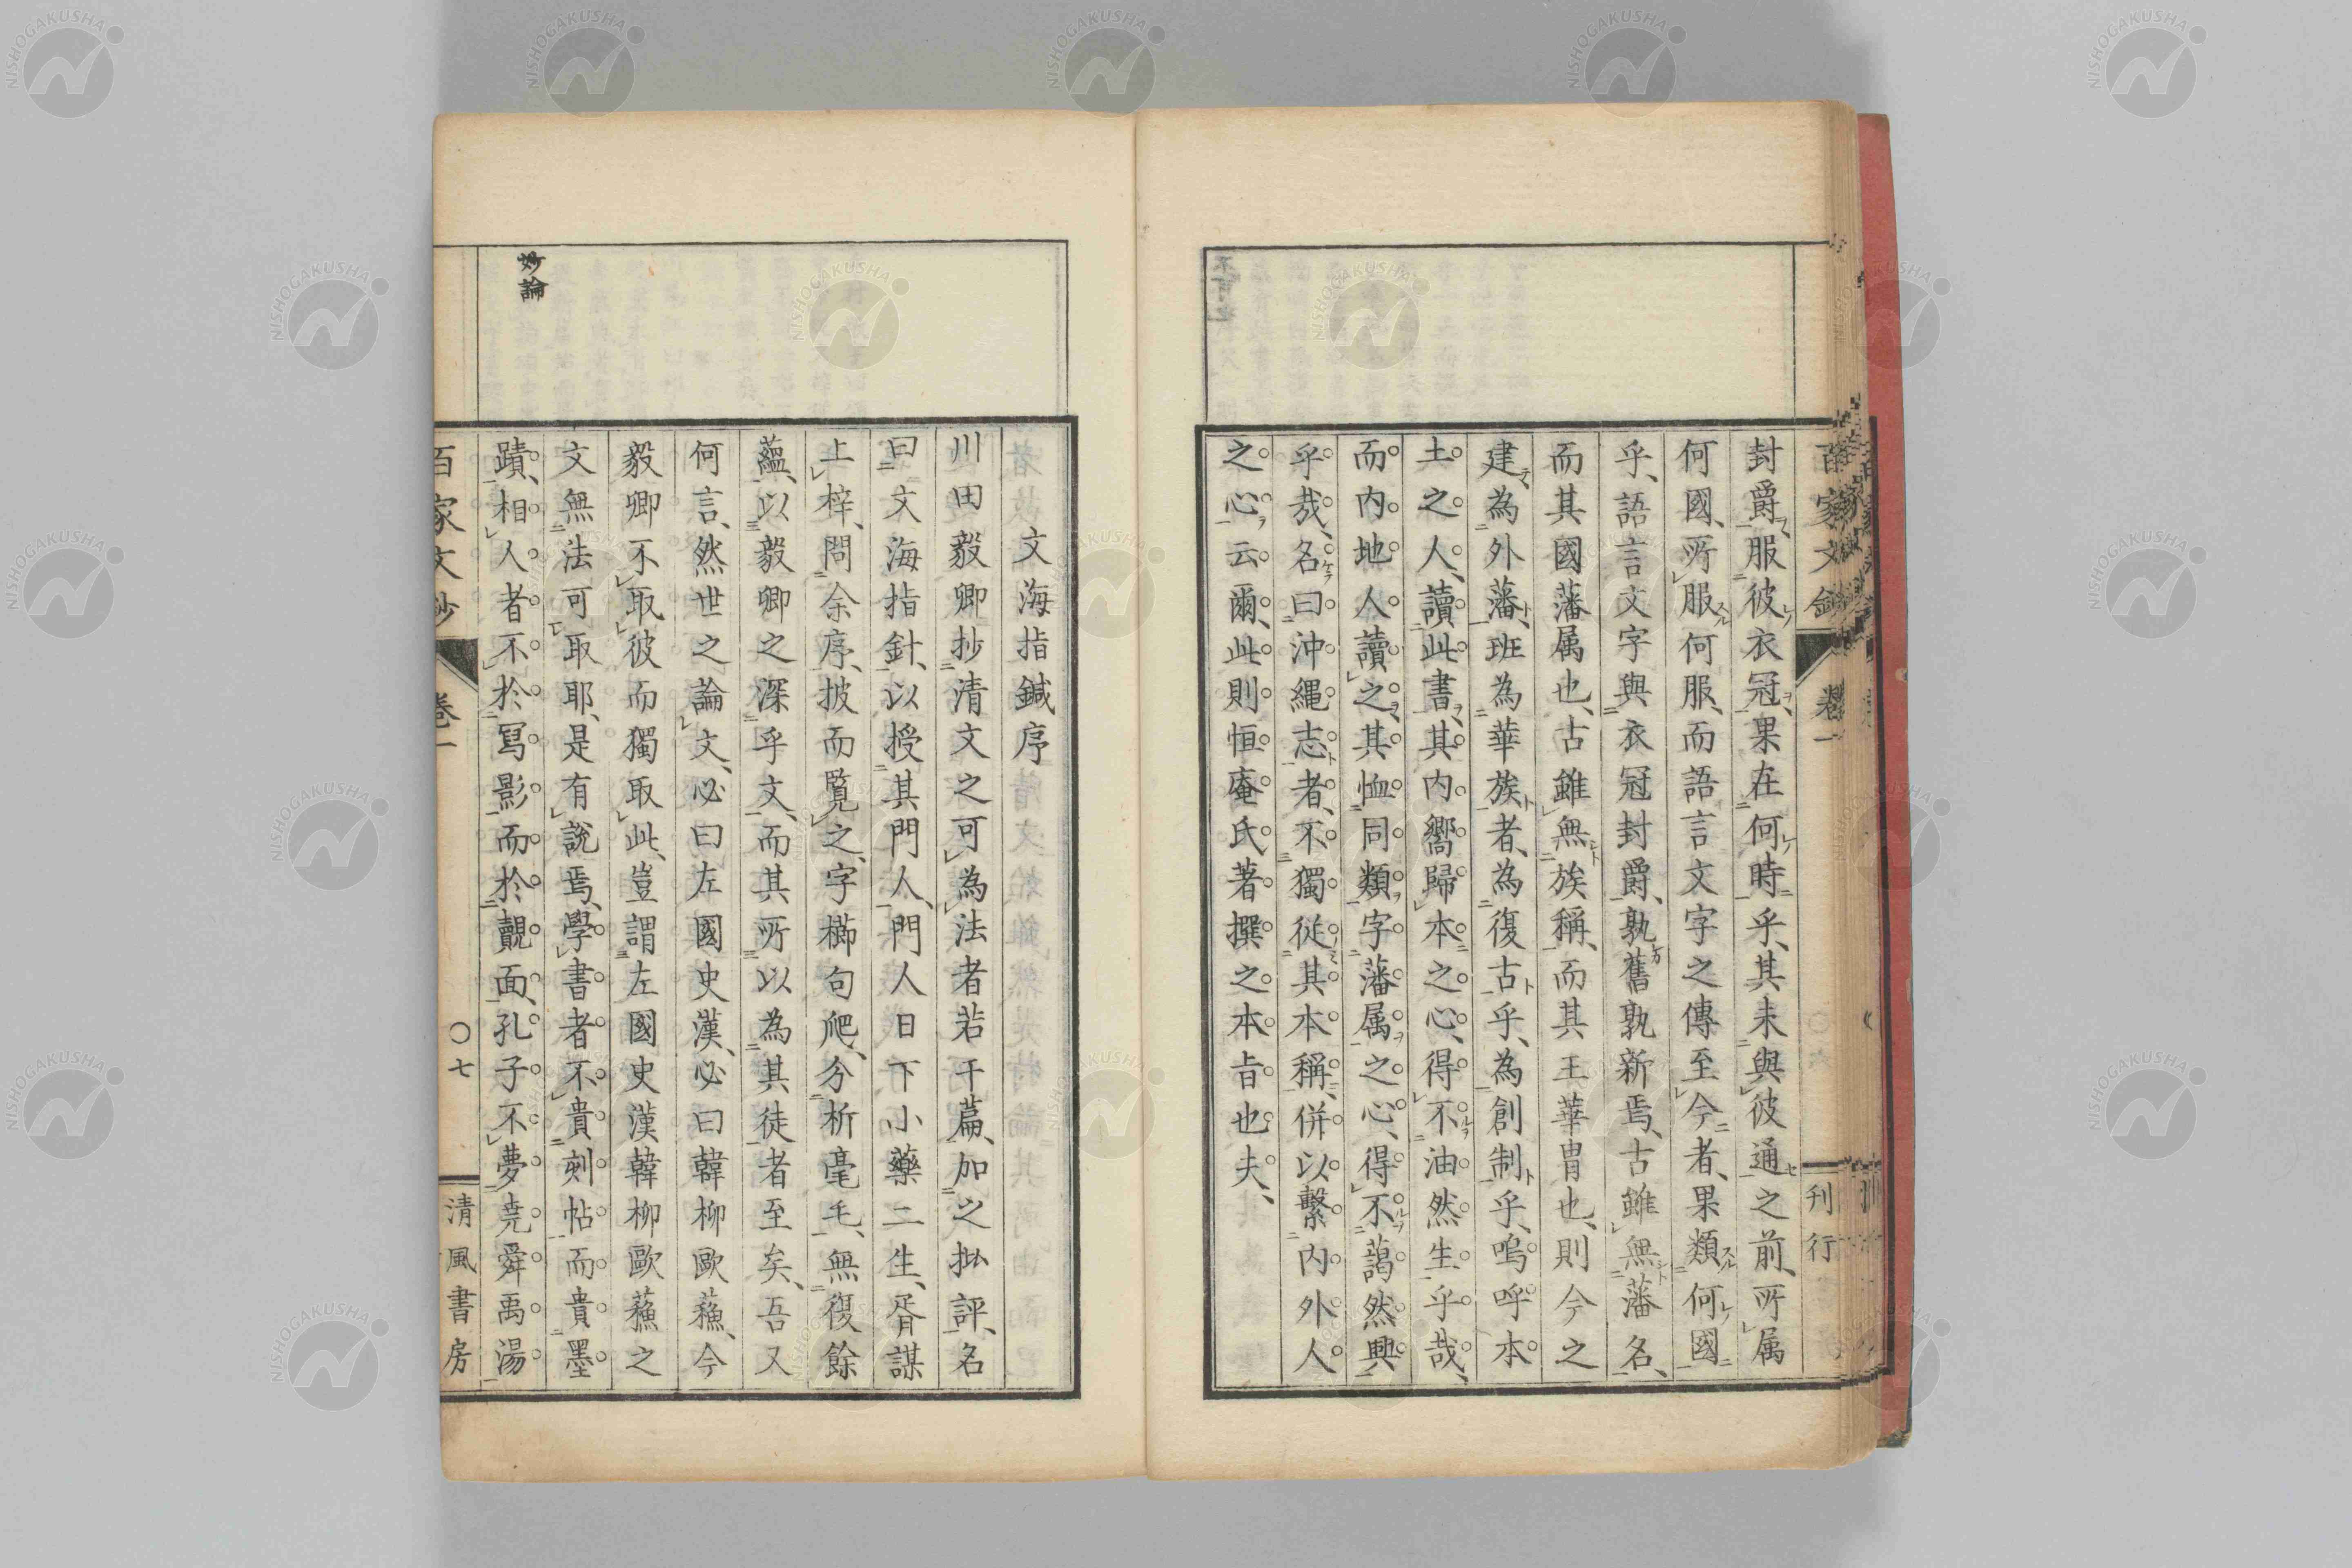 百家文鈔
卷一
刊行
封爵、服彼衣冠、果在何時乎、其未與彼通之前、所属
何國、所服何服、而語言文字之傳至今者、果類何國
乎、語言文字與衣冠封爵、孰舊孰新焉、古雖無藩名、
而其國藩属也、古雖無族稱、而其王華冑也、則今之
建為外藩、班為華族者、為復古乎、為創制乎、嗚呼本
土之人、讀此書、其内嚮歸本之心、得不油然生乎哉、
而内地人讀之、其恤同類字藩属之心、得不藹然興
乎哉、名曰沖縄志者、不獨従其本稱、併以繫内外人
之心云爾、此則恒庵氏著撰之本旨也夫、
文海指鍼序
川田毅卿抄清文之可為法者若干篇、加之批評、名
曰文海指針、以授其門人、門人日下小藥二生、胥謀
上梓、問余序、披而覧之、字櫛句爬、分析毫毛、無復餘
蘊、以毅卿之深乎文、而其所以為其徒者至矣、吾又
何言、然世之論文、必曰左國史漢、必曰韓柳歐蘓、今
毅卿不取彼而獨取此、豈謂左國史漢韓柳歐蘓之
文無法可取耶、是有説焉、學書者不貴刻帖而貴墨
蹟、相人者不於冩影而於覿面、孔子不夢堯舜禹湯
妙論
百家文鈔
卷一
〇七
清風書房
NISHOGAKUSHA